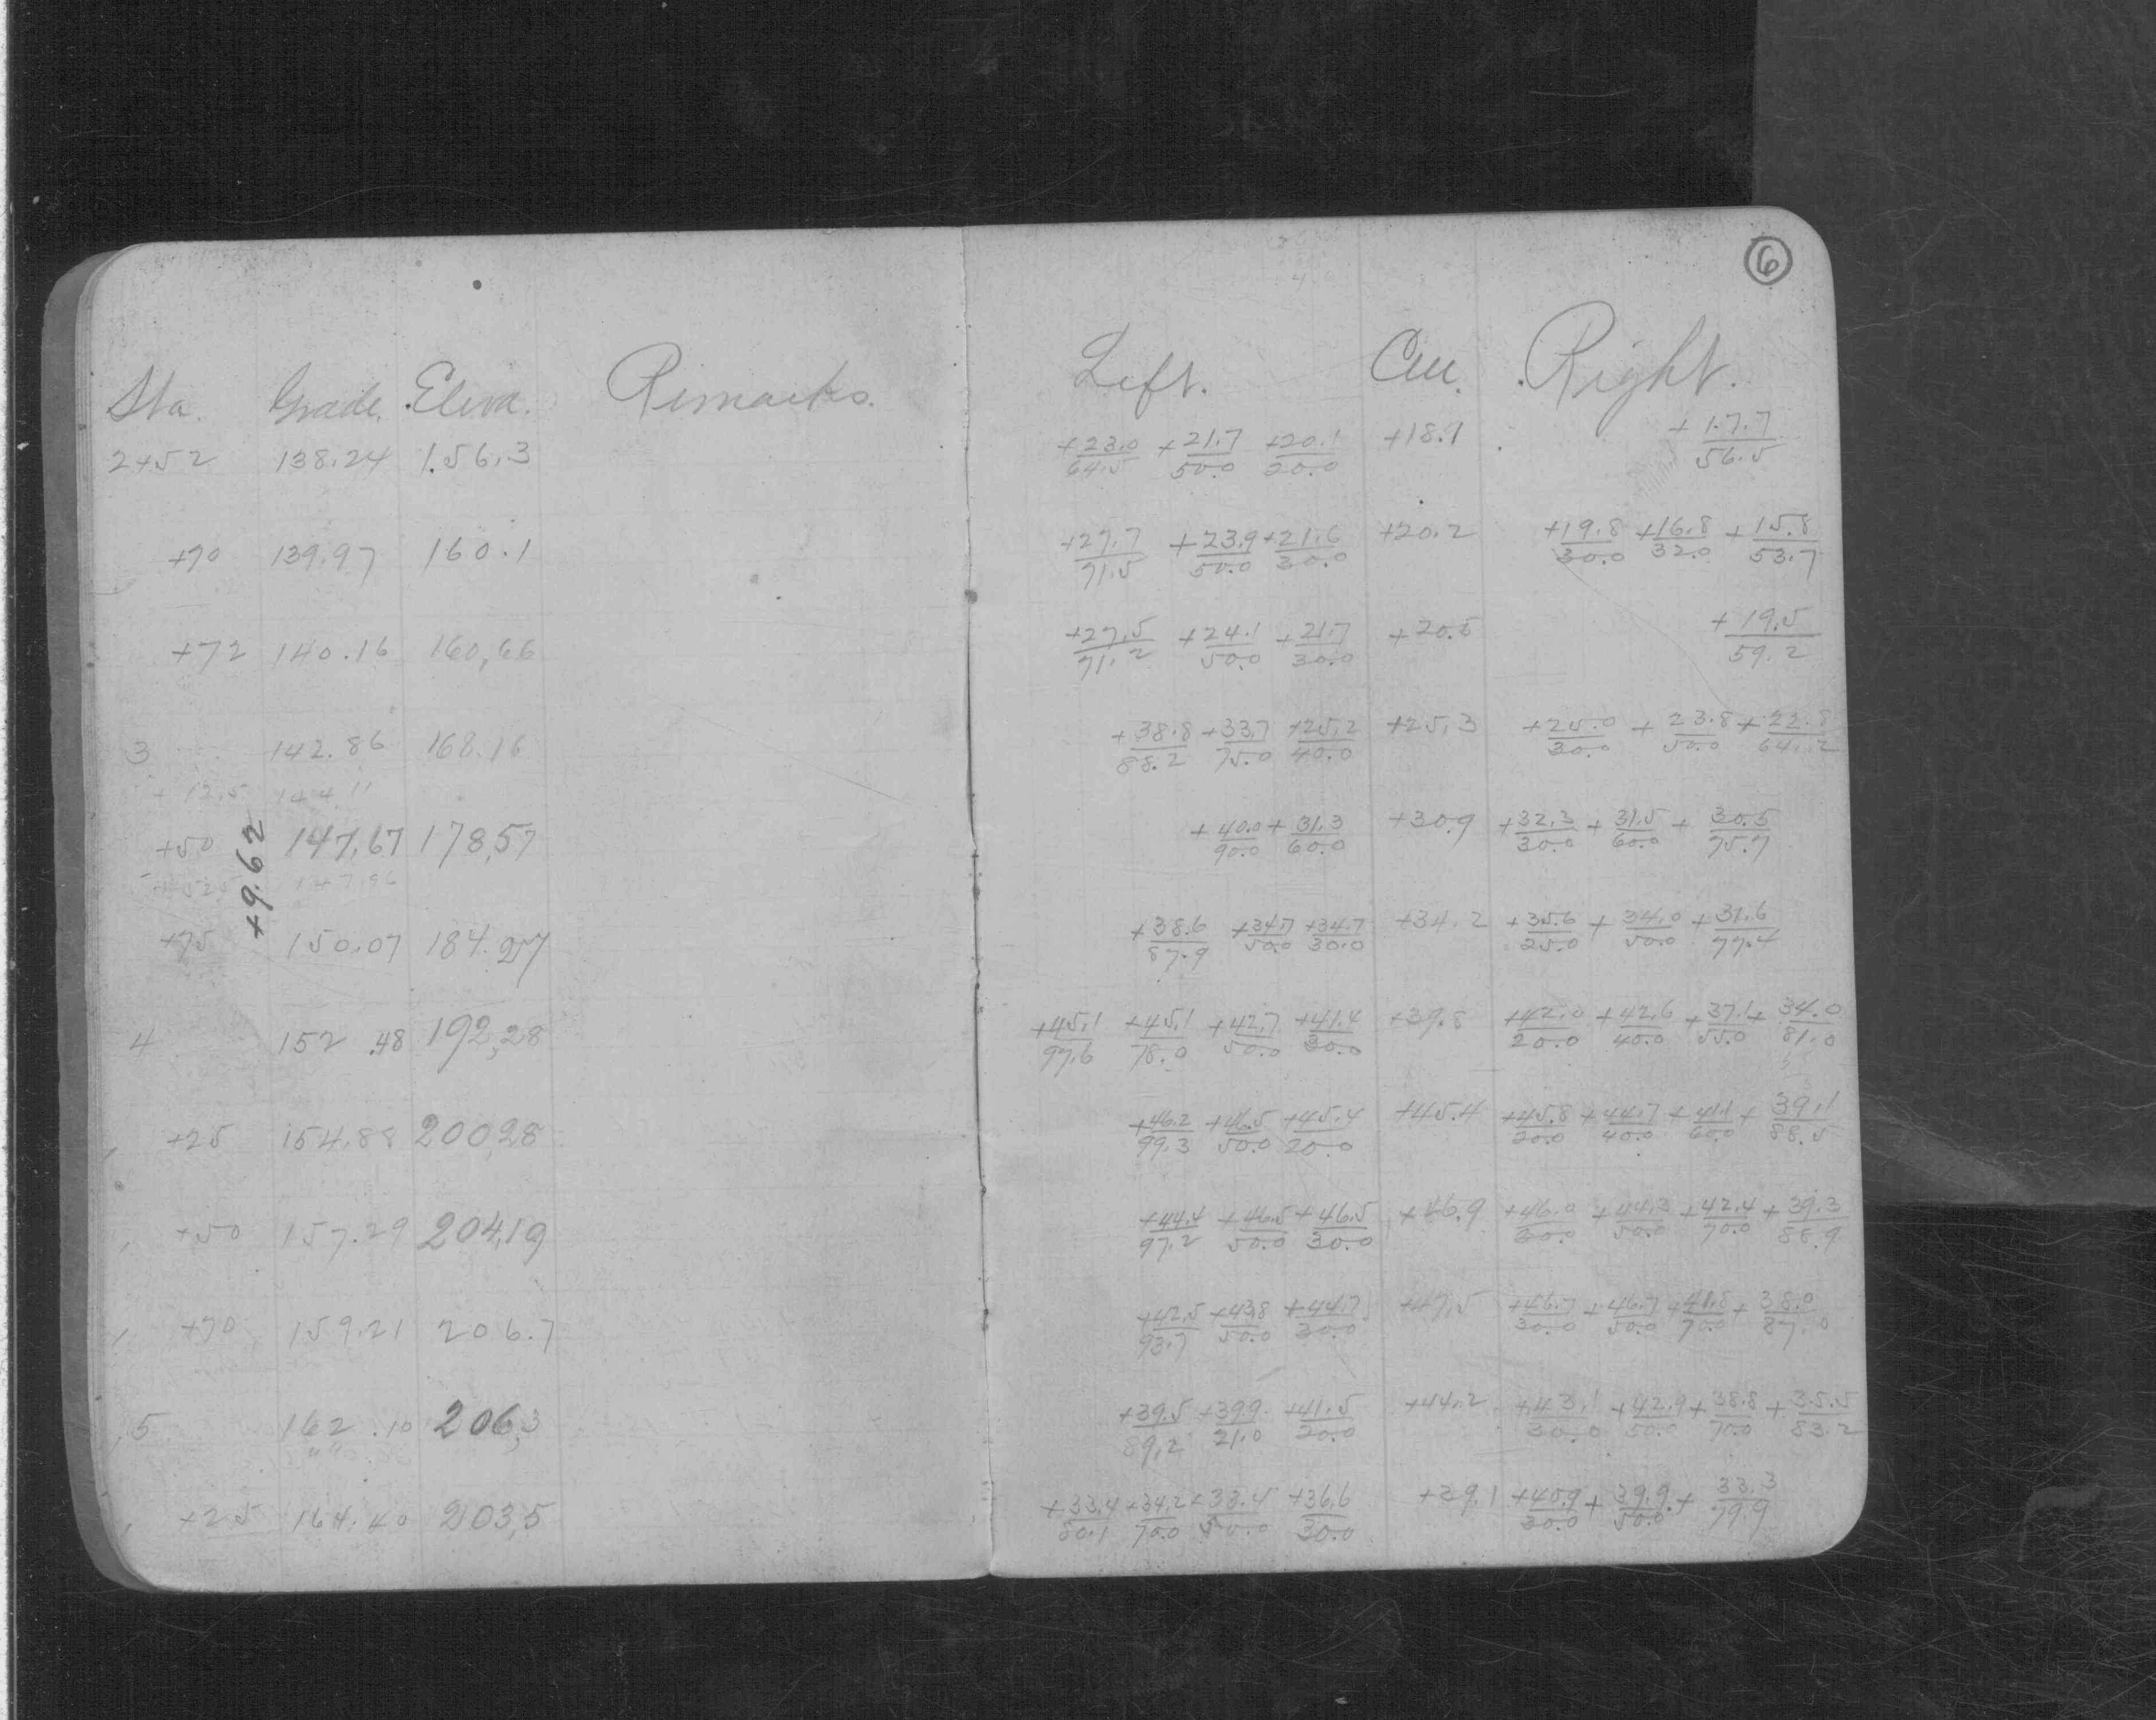 6
Sta. Grade. Eleva. Remarks. Left. Cen. Right.
2+52 138.24 156.3 +23.0/64.5 +21.7/50.0 +20.1/20.0 +18.1 +17.7/56.5
+70 139.97 160.1 +27.7/71.5 +23.9/50.0 +21.6/30.0 +20.2 +19.8/30.0 +16.8/32.0 +15.8/53.7
+72 140.16 160,66 +27.5/71.2 +24.1/50.0 +21.7/30.0 +20.5 +19.5/59.2
3 142.86 168.16 +38.8/88.2 +33.7/75.0 +25.2/40.0 +25.3 +25.0/30.0 +23.8/50.0 +22.8/64.2
+12.5 144.11
+50 147.67 178,57 +40.0/90.0 +31.3/60.0 +30.9 +32.3/30.0 +31.5/60.0 +30.5/75.7
+9.62
147.96
+75 150.07 184.27 +38.6/87.9 +34.7/50.0 +34.7/30.0 +34.2 +35.6/25.0 +34.0/50.0 +31.6/77.4
4 152.48 192,28 +45.1/97.6 +45.1/78.0 +42.7/50.0 +41.4/30.0 +39.8 +42.0/20.0 +42.6/40.0 +37.1/55.0 +34.0/81.0
+25 154.88 200,28 +46.2/99.3 +46.5/50.0 +45.4/20.0 +45.4 +45.8/20.0 +44.7/40.0 +41.1/60.0 +39.1/88.5
+50 157.29 204,19 +44.4/97.2 +46.5/50.0 +46.5/30.0 +46.9 +46.0/30.0 +44.3/50.0 +42.4/70.0 +39.3/88.9
+70 159.21 206.7 +42.5/93.7 +43.8/50.0 +44.7/30.0 +47.5 +46.7/30.0 +46.7/50.0 +41.8/70.0 +38.0/87.0
5 162.10 206,3 +39.5/89.2 +39.9/21.0 +41.5/20.0 +44.2 +43.1/30.0 +42.9/50.0 +38.8/70.0 +35.5/83.2
+25 164.40 203,5 +33.4/80.1 +34.2/70.0 +33.4/50.0 +36.6/30.0 +39.1 +40.9/30.0 +39.9/50.0 +33.3/79.9